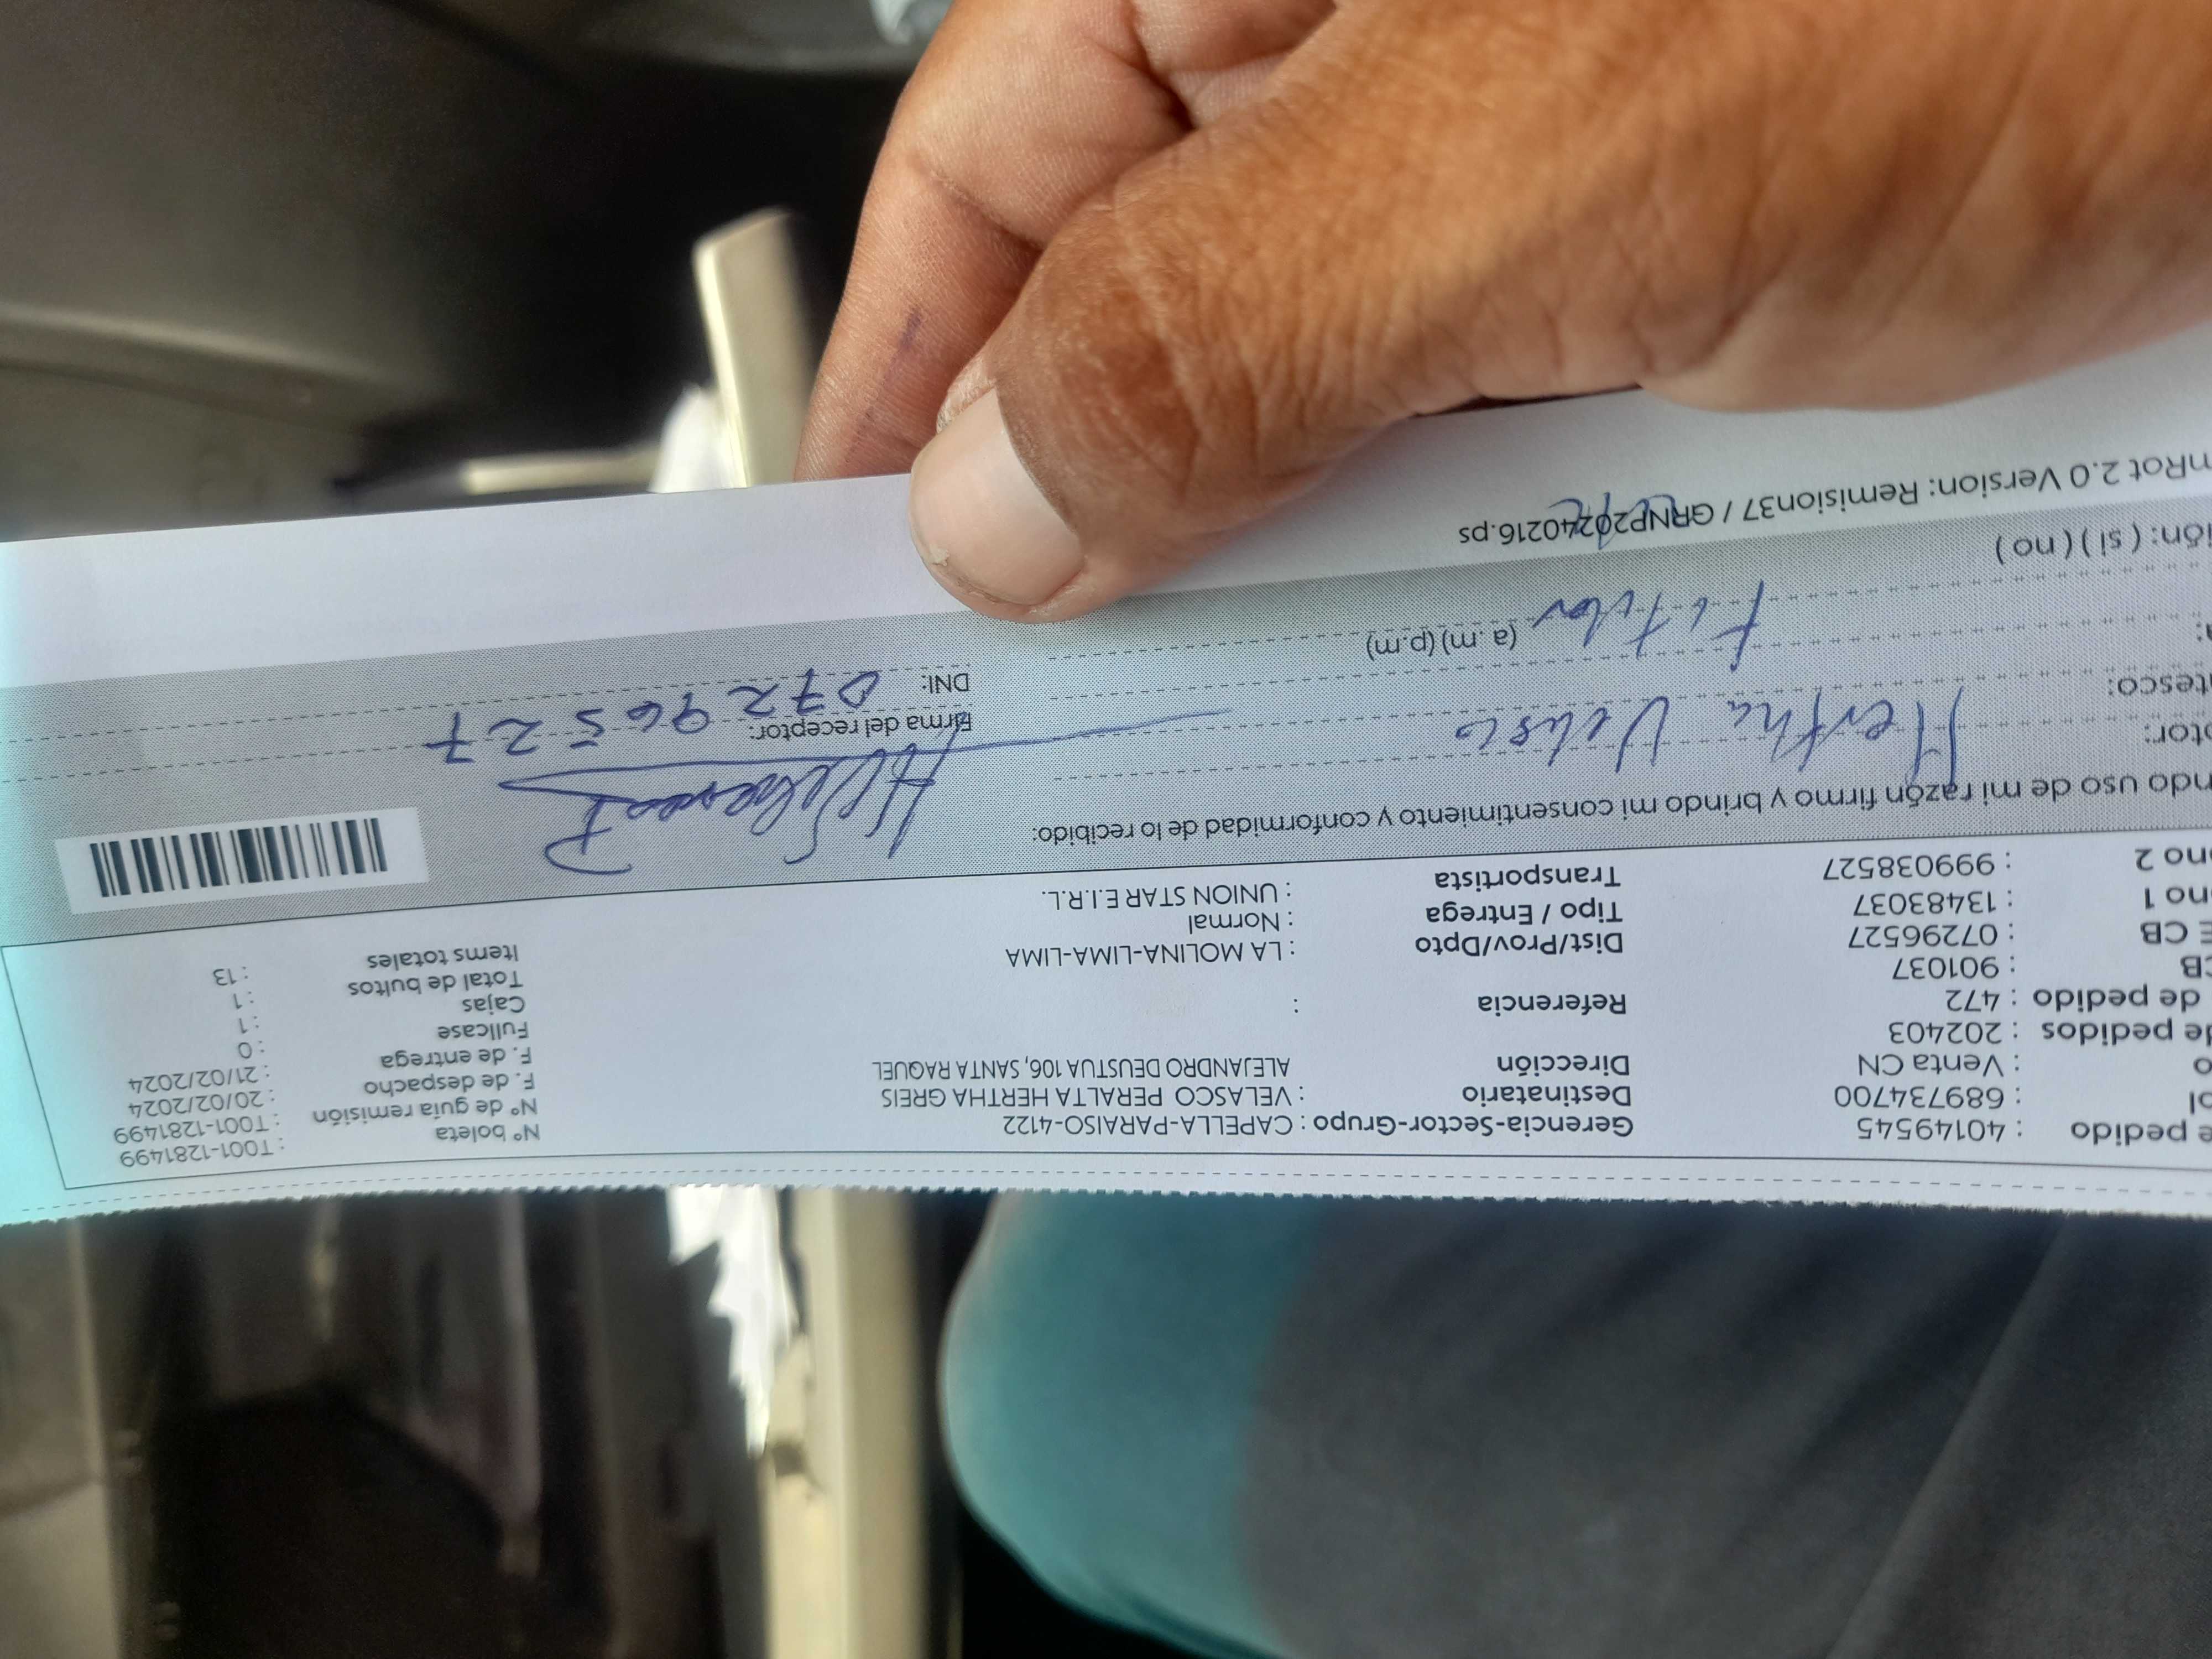 e pedido : 40149545
ol : 689734700
o : Venta CN
de pedidos : 202403
de pedido : 472
CB : 901037
E CB : 07296527
ono 1 : 13483037
ono 2 : 999038527
Gerencia-Sector-Grupo : CAPELLA-PARAISO-4122
Destinatario : VELASCO PERALTA HERTHA GREIS
Dirección ALEJANDRO DEUSTUA 106, SANTA RAQUEL
Referencia :
Dist/Prov/Dpto : LA MOLINA-LIMA-LIMA
Tipo / Entrega : Normal
Transportista : UNION STAR E.I.R.L.
N° boleta : T001-1281499
N° de guía remisión : T001-1281499
F. de despacho : 20/02/2024
F. de entrega : 21/02/2024
Fullcase : 0
Cajas : 1
Total de bultos : 1
Items totales : 13
ndo uso de mi razón firmo y brindo mi consentimiento y conformidad de lo recibido:
ptor: Hertha Velasco
tesco: Titular
a: (a. m) (p.m)
ión: ( si ) ( no )
Firma del receptor:
DNI: 07296527
nRot 2.0 Version: Remision37 / GRNP20240216.ps